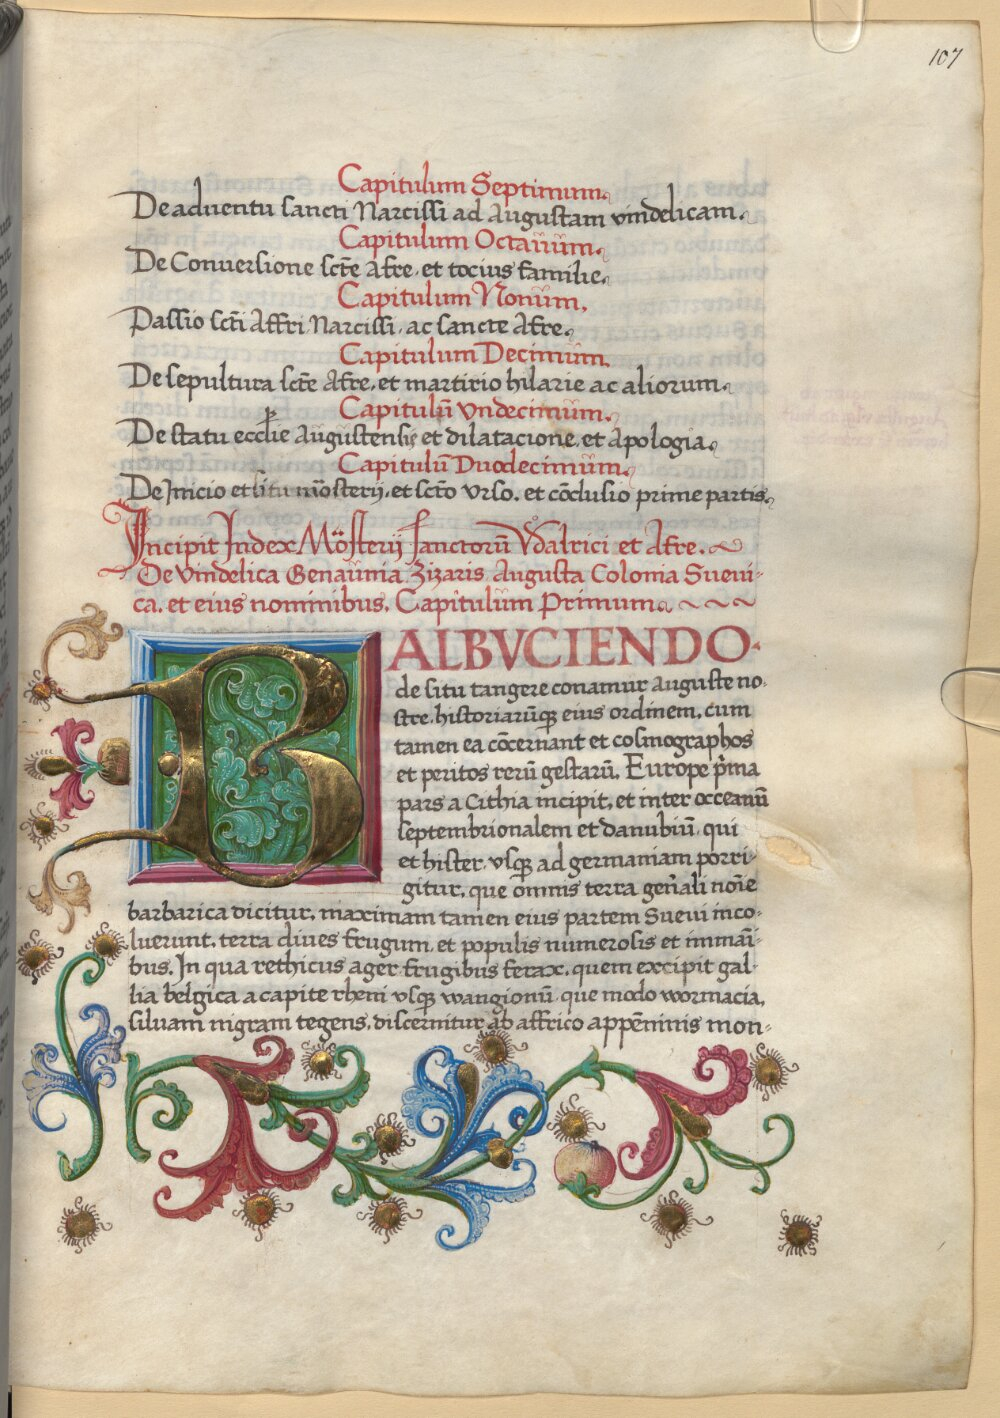 107
Capitulum Septimum.
De adventu sancti Narcissi ad augustam vindelicam.
Capitulum Octauum.
De Conversione scte afre. et tocius familie.
Capitulum Nonum.
Passio scti Affri Narcissi. ac sancte Afre.
Capitulum Decimum.
De sepultura scte Afre. et martirio hilarie ac aliorum.
Capitulū Vndecimum.
De statu ecclie Augustensis et dilatacione. et Apologia.
Capitulū Duodecimum.
De Inicio et situ mōsterij. et scto Vrso. et cōclusio prime partis.
Incipit Index Mōsterij sanctorū Vdalrici et Afre.
De vindelica Genaunia Zizaris Augusta Colonia Suevi-
ca. et eius nominibus. Capitulum Primum.
BALBVCIENDO.
de situ tangere conamur auguste no-
stre. historiarūqꝫ eius ordinem. cum
tamen ea cōcernant et cosmographos
et peritos rerū gestarū. Europe p̄ma
pars a Cithia incipit. et inter occeanū
septembrionalem et danubiū. qui
et hister. vsqꝫ ad germaniam porri-
gitur. que omnis terra gen̄ali noīe
barbarica dicitur. maximam tamen eius partem Suevi inco-
luerunt. terra dives frugum et populis numerosis et immāi-
bus. In qua rethicus ager frugibus ferax. quem excipit gal-
lia belgica a capite rheni vsqꝫ wangionū. que modo wormacia.
siluam nigram tegens. discernitur ab affrico appēninis mon-